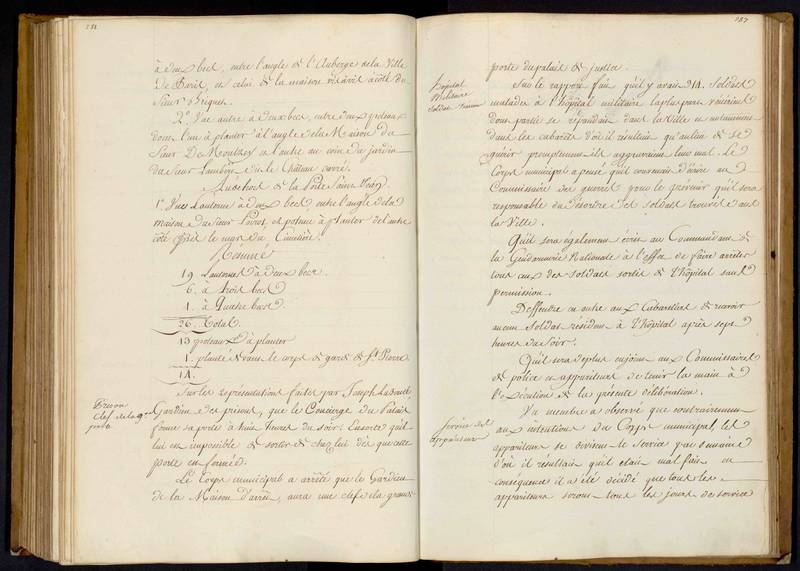 à deux becs, entre l'angle de l'Auberge de la Ville
De Paris, et celui de la maison vis à vis à côté du
Sieur
2.° Une autre à deux becs, entre deux poteaux
dont l'un à planter à l'angle de la Maison du
Sieur De et l'autre au coin du jardin
du Sieur dit le Château carré.
de la Porte Saint
1.° Une Lanterne à deux becs entre l'angle de la
maison du Sieur et poteau à planter de l'autre
côté près le mur du Cimetière.
Résumé
19 Lanternes à deux becs.
6. à trois becs
1. à Quatre becs
26. Total.
13 poteaux à planter
1. planté devant le corps de garde de St. Pierre
14.
Prison
Clef de la gde
porte
Sur les représentations faites par Joseph
Gardien des prisons, que le Concierge du Palais
ferme sa porte à huit heures du soir; Ensorte qu'il
lui est impossible de sortir de chez lui dès que cette
porte est fermée.
Le Corps municipal a arrêté que le Gardien
de la Maison d'arrêt, aura une clef de la grande
187
porte du palais de justice.
hôpital
Militaire
Soldats
Sur le rapport fait qu'il y avait 214. Soldats
malades à l'hôpital militaire la plupart
dont partie se répandait dans la Ville et notamment
dans les cabarets d'où il résultait qu'au lieu de se
guérir promptement ils aggravaient leur mal. Le
Corps municipal a pensé qu'il convenait d'écrire au
Commissaire des guerres pour le prévenir qu'il sera
responsable du désordre des soldats trouvés dans
la Ville.
Qu'il sera également écrit au Commandant de
la Gendarmerie Nationale à l'effet de faire arrêter
tous ceux des Soldats sortis de l'hôpital sans
permission.
Deffendre en outre aux Cabaretiers de recevoir
aucun Soldat résident à l'hôpital après sept
heures du Soir.
Qu'il sera de plus enjoint aux Commissaires
de police et appariteurs de tenir la main à
l'exécution de la présente délibération.
Service des
appariteurs
Un membre a observé que contrairement
aux intentions du Corps municipal, les
appariteurs se divisent le Service par semaine
d'où il résultait qu'il était mal fait en
conséquence il a été décidé que tous les
appariteurs seront tous les jours de service